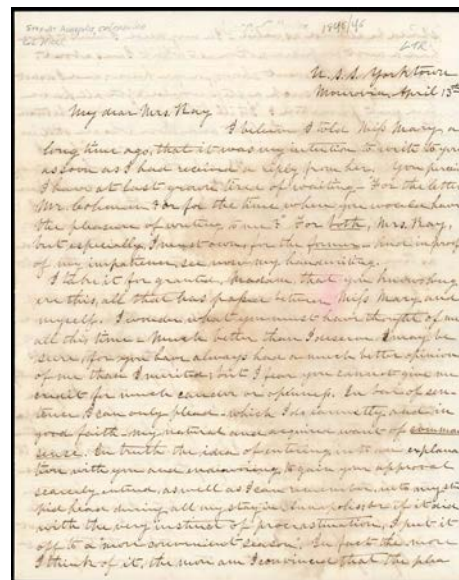 1845/46
LTR
U.S.S. Yorktown
Monrovia, April 13th
My dear Mrs. Ray
I believe I told Miss Mary, a
long time ago, that it was my intention to write to you
as soon as I had received a reply from her. You
I have at last grown tired of waiting - For the letter
Mr. or for the time when you would have
the pleasure of writing to me? For both, Mrs. Ray,
but especially, I must own, for the former. And in proof
of my impatience, see now my handwriting.
I take it for granted, Madam, that you know long
ere this, all that has passed between Miss Mary and
myself. I wonder what you must have thought of me
all this time - Much better than I deserve I may be
sure, for you have always had a much better opinion
of me than I merited; but I fear you cannot give me
credit for much candor or openness. In bar of sen-
tence I can only plead - which I do earnestly, and in
good faith - my natural and acquired want of common
sense. In truth the idea of entering into an explana-
tion with you and endeavoring to gain your approval
scarcely entered, as well as I can remember, into my stu-
pid head during all my stay in Annapolis: or if it did
with the very instinct of procrastination, I put it
off to a "more convenient season". In fact the more
I think of it, the more am I convinced that the plea